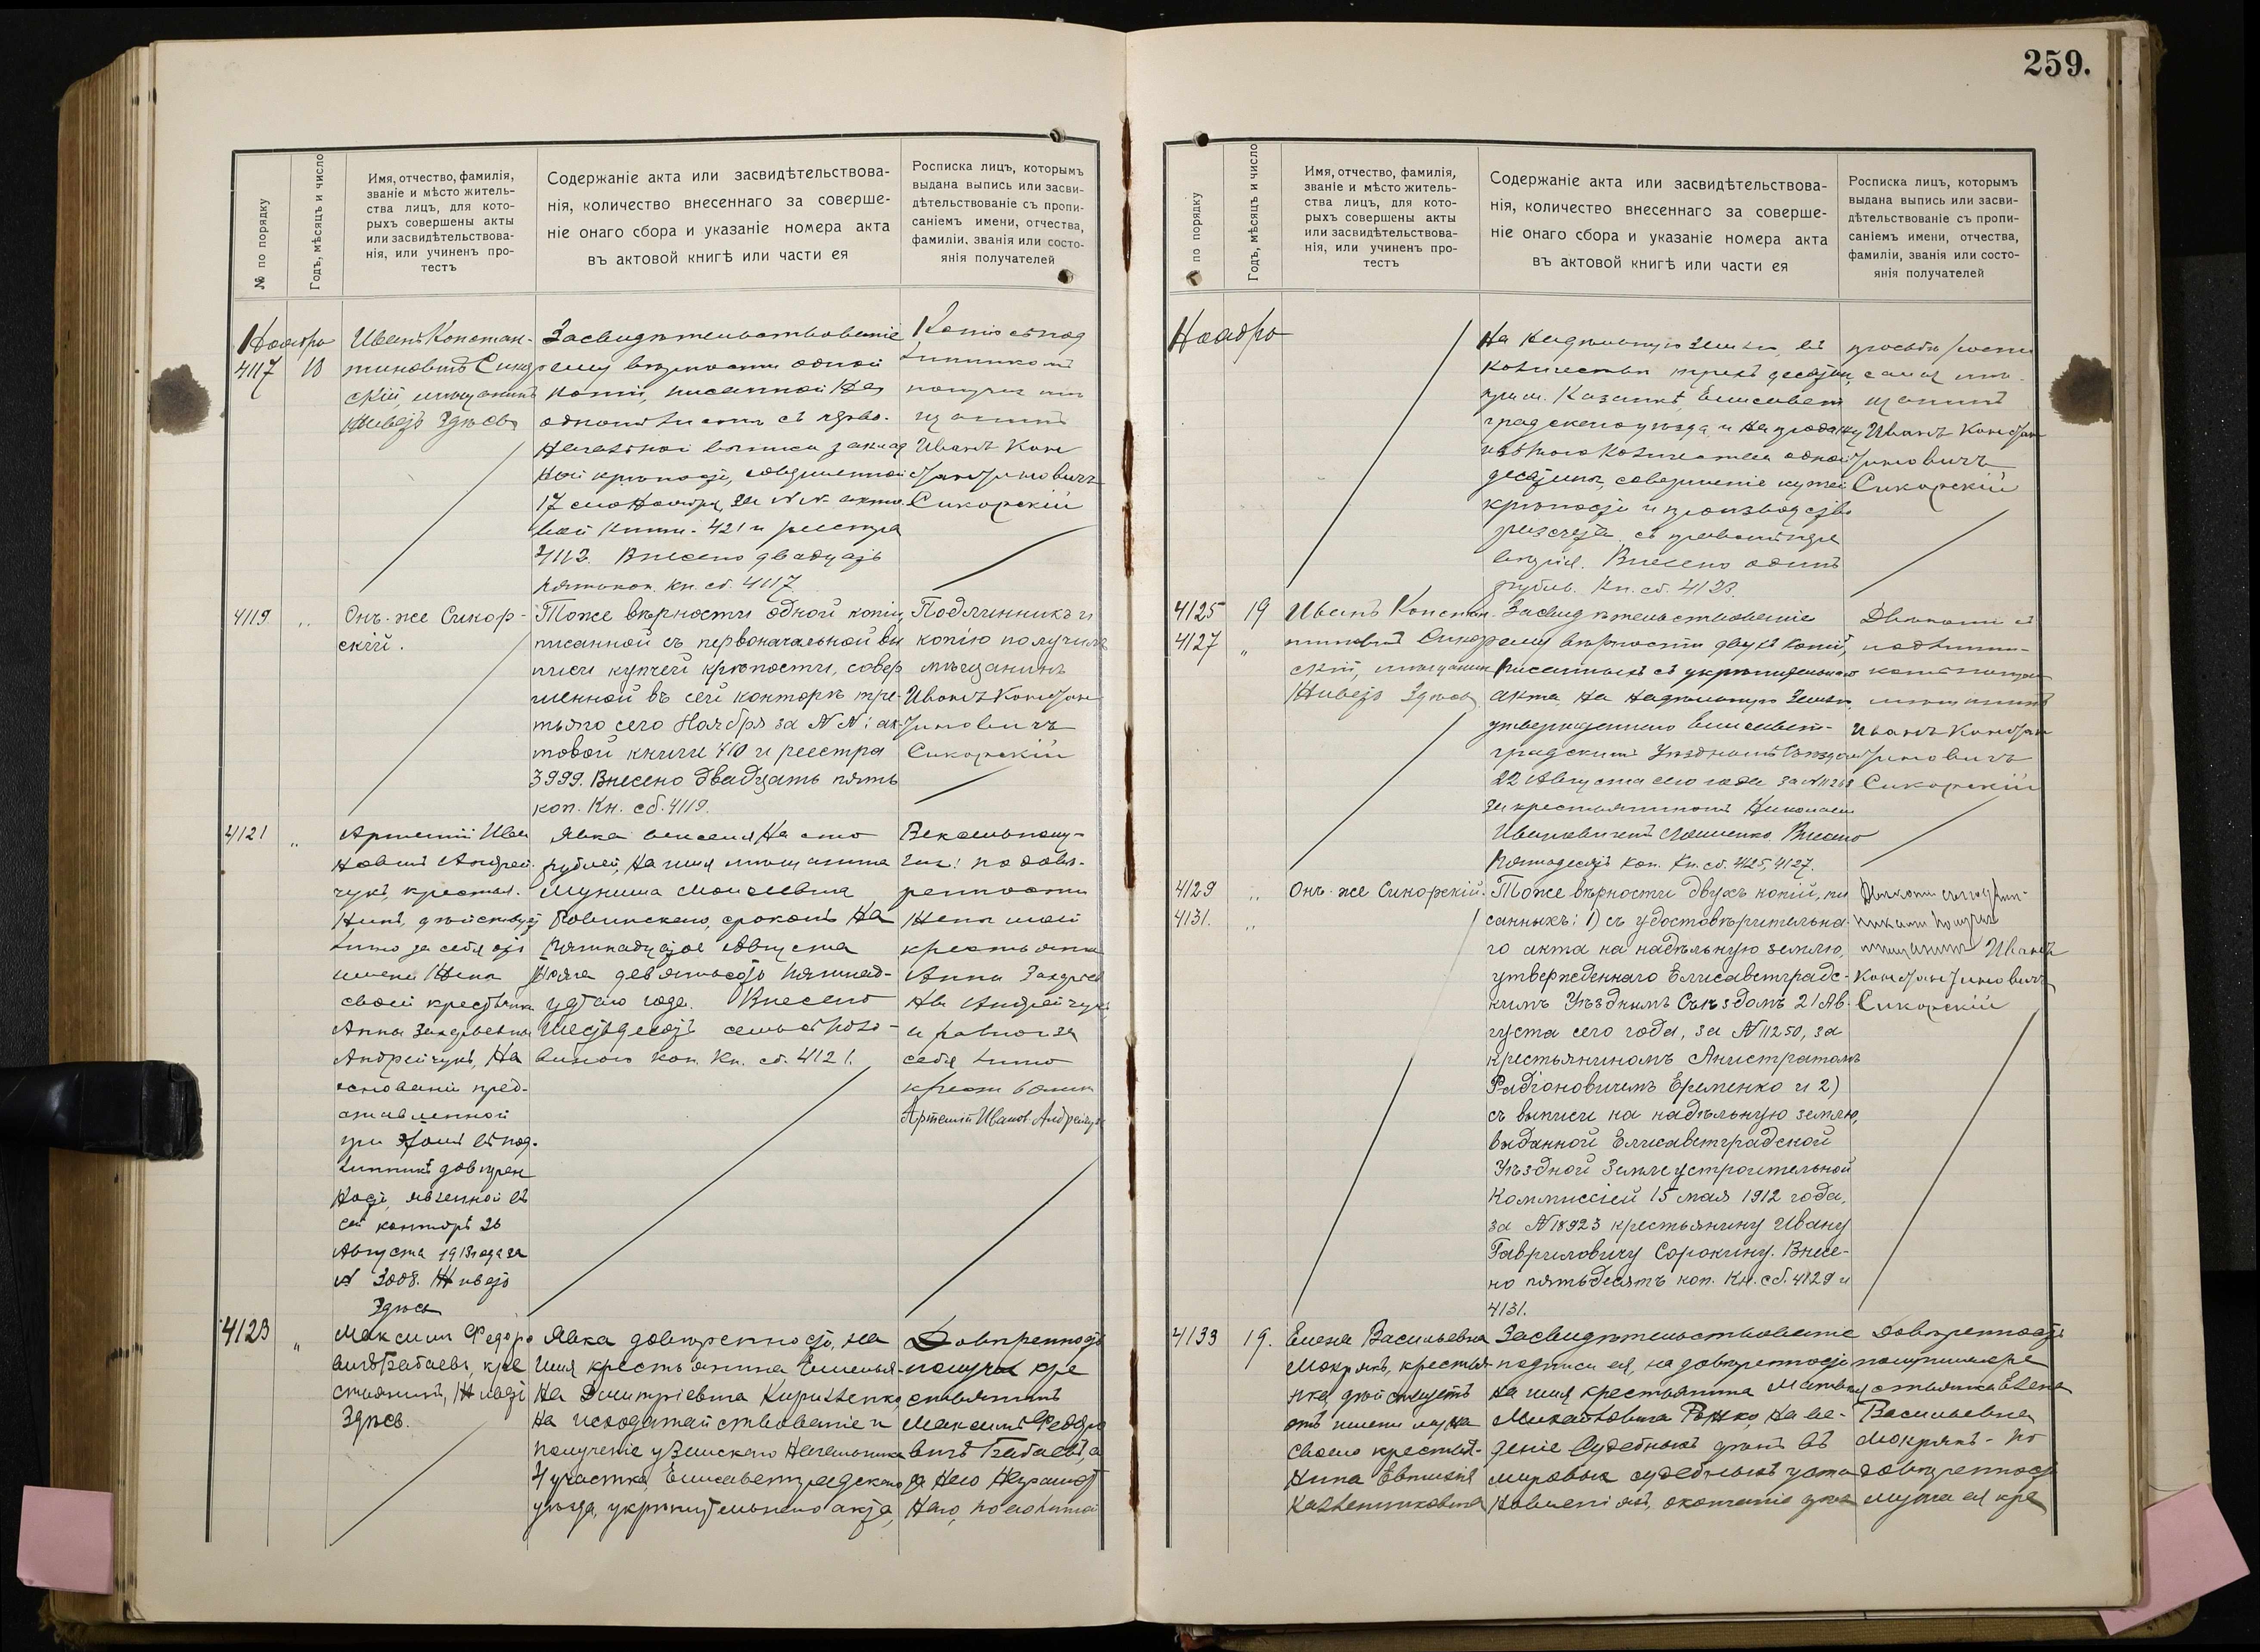 259.
№ по порядку
Годъ, мѣсяцъ и число
Имя, отчество, фамилія,
званіе и мѣсто житель-
ства лицъ, для кото-
рыхъ совершены акты
или засвидѣтельствова-
нія, или учиненъ про-
тестъ
Содержаніе акта или засвидѣтельствова-
нія, количество внесеннаго за соверше-
ніе онаго сбора и указаніе номера акта
въ актовой книгѣ или части ея
Росписка лицъ, которымъ
выдана выпись или засви-
дѣтельствованіе съ пропи-
саніемъ имени, отчества,
фамиліи, званія или состо-
янія получателей
Ноября
4117
18
Иванъ Констан-
тиновичъ Сикор
скій, мѣщанинъ
живетъ здѣсь
Засвидѣтельствованіе
вѣрности одной
копіи, писанной на
одномъ листѣ съ перво-
начальной выписи заклад
ной крѣпости, совершенной
17 сего Ноября, за № № акто
вой книги 421 и реестра
4113. Внесено двадцать
пять коп. Кн. сб. 4117
Копію съ под
линникомъ
получилъ мѣ
щанинъ
Иванъ Кон
стантиновичъ
Сикорскій
4119
„
Онъ-же Сикор-
скій.
Тоже вѣрности одной копіи,
писанной съ первоначальной вы
писи купчей крѣпости, совер
шенной въ сей конторѣ тре-
тьяго сего Ноября за №№: ак-
товой книги 410 и реестра
3999. Внесено двадцать пять
коп. Кн. сб. 4119.
Подлинникъ и
копію получилъ
мѣщанинъ
Иванъ Констан
тиновичъ
Сикорскій
4121
„
Артемій Ива
новичъ Андрей-
чукъ, крестья-
нинъ, дѣйствуетъ
лично за себя отъ
имени жены
своей крестьянки
Анны Захарьевны
Андрейчукъ, на
основаніи пред-
ставленной
при этомъ въ под-
линникѣ довѣрен
ности, явленной въ
сей конторѣ 26
Августа 1913 года за
№ 3008. Живетъ
здѣсь
Явка векселя на сто
рублей, на имя мѣщанина
Мунища Моисеевича
Ровинскаго, срокомъ на
пятнадцатое Августа
тысяча девятьсотъ пятнад-
цатаго года. Внесено
шестьдесятъ семь съ поло-
виною коп. Кн. сб. 4121.
Вексель полу-
чилъ: по довѣ-
ренности
жены моей
крестьянки
Анны Захарьев
ны Андрейчукъ
и равно за
себя лично
крестьянинъ
Артемій Иванов. Андрейчукъ
4123
„
Максимъ Федоро
вичъ Бабаевъ, кре
стьянинъ, живетъ
здѣсь.
Явка довѣренности, на
имя крестьянина Емельяна
Дмитріевича Кириленко
на исходатайствованіе и
полученіе у Земскаго Начальника
4 участка, Елисаветградскаго
уѣзда, укрѣпительнаго акта,
Довѣренность
получилъ кре
стьянинъ
Максимъ Федоро
вичъ Бабаевъ, а
за него неграмот
наго, по его личной
№ по порядку
Годъ, мѣсяцъ и число
Имя, отчество, фамилія,
званіе и мѣсто житель-
ства лицъ, для кото-
рыхъ совершены акты
или засвидѣтельствова-
нія, или учиненъ про-
тестъ
Содержаніе акта или засвидѣтельствова-
нія, количество внесеннаго за соверше-
ніе онаго сбора и указаніе номера акта
въ актовой книгѣ или части ея
Росписка лицъ, которымъ
выдана выпись или засви-
дѣтельствованіе съ пропи-
саніемъ имени, отчества,
фамиліи, званія или состо-
янія получателей
Ноября
на надѣльную землю, въ
количествѣ трехъ десятинъ,
при м. Казанкѣ, Елисавет
градскаго уѣзда и на продажу
количества одной
десятины, совершеніе купчей
крѣпости и производство
разсчета съ правомъ пере
вѣрія. Внесено одинъ
рубль. Кн. сб. 4123.
просьбѣ
мѣ
щанинъ
Иванъ Констан
тиновичъ
Сикорскій
4125
4127
19
„
Иванъ Констан-
тиновичъ Сикор
скій, мѣщанинъ
живетъ здѣсь
Засвидѣтельствованіе
вѣрности двухъ копій,
писанныхъ съ укрѣпительнаго
акта на надѣльную землю,
утвержденнаго Елисавет-
градскимъ Уѣзднымъ Съѣздомъ
22 Августа сего года за № 11268
за крестьяниномъ Николаемъ
Ивановичемъ Ляшенко. Внесено
пятьдесятъ коп. Кн. сб. 4125, 4127.
Двѣ копіи съ
подлинни-
комъ получилъ
мѣщанинъ
Иванъ Констан
тиновичъ
Сикорскій
4129
4131.
„
„
Онъ-же Сикорскій.
Тоже вѣрности двухъ копій, пи
санныхъ: 1) съ удостовѣрительна
го акта на надѣльную землю,
утвержденнаго Елисаветградс-
кимъ Уѣзднымъ Съѣздомъ 21 Ав-
густа сего года, за № 11250, за
крестьяниномъ Анистратомъ
Радіоновичемъ Еременко и 2)
съ выписи на надѣльную землю,
выданной Елисаветградской
Уѣздной Землеустроительной
Коммиссіей 15 мая 1912 года,
за № 18923 крестьянину Ивану
Гавриловичу Сорокину. Внесе-
но пятьдесятъ коп. Кн. сб. 4129 и
4131.
Двѣ копіи съ подлин-
никами получилъ
мѣщанинъ Иванъ
Константиновичъ
Сикорскій
4133
19.
Елена Васильевна
Мокрякъ, крестья-
нка, дѣйствуетъ
отъ имени мужа
своего крестья-
нина Евтихія
Калленниковича
Засвидѣтельствованіе
подписи ея, на довѣренности
на имя крестьянина Матвѣя
Михайловича Рожко, на ве-
деніе судебныхъ дѣлъ въ
мировыхъ судебныхъ уста
новленіяхъ, окончаніе дѣла
Довѣренность
получила кре
стьянка Елена
Васильевна
Мокрякъ - по
довѣренности
мужа ея кре